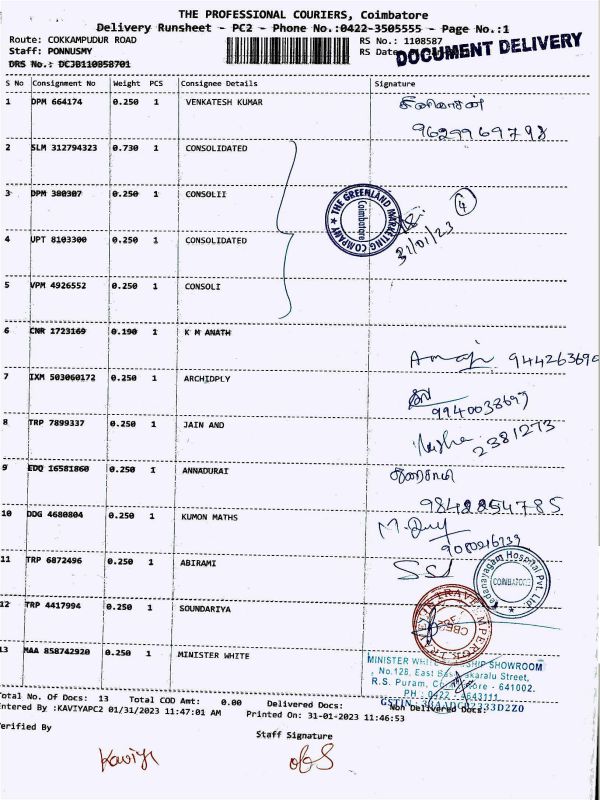 THE PROFESSIONAL COURIERS, Coimbatore
Delivery Runsheet - PC2 - Phone No.:0422-3505555 - Page No.:1
Route: COKKAMPUDUR ROAD RS No.: 1108587
Staff: PONNUSMY RS Date
DRS No.: DCJB110858701
DOCUMENT DELIVERY
S No Consignment No Weight PCS Consignee Details Signature
1 DPM 664174 0.250 1 VENKATESH KUMAR
9629969798
2 SLM 312794323 0.730 1 CONSOLIDATED
3 DPM 380307 0.250 1 CONSOLII
THE GREENLAND MARKETING COMPANY Coimbatore
4
31/01/23
4 UPT 8103300 0.250 1 CONSOLIDATED
5 VPM 4926552 0.250 1 CONSOLI
6 CNR 1723169 0.190 1 K M ANATH
7 IXM 503060172 0.250 1 ARCHIDPLY
9940038697
8 TRP 7899337 0.250 1 JAIN AND
2381273
9 EDQ 16581860 0.250 1 ANNADURAI
துரைசாமி
9842254785
10 DDG 4680804 0.250 1 KUMON MATHS
11 TRP 6872496 0.250 1 ABIRAMI
Hospital Pvt Ltd
COIMBATORE
12 TRP 4417994 0.250 1 SOUNDARIYA
13 MAA 858742920 0.250 1 MINISTER WHITE
MINISTER WHITE SHOWROOM
No.128, East
R.S. Puram, 641002.
PH : 0422 - 4643111
Total No. Of Docs: 13 Total COD Amt: 0.00 Delivered Docs: Non Delivered Docs:
Entered By :KAVIYAPC2 01/31/2023 11:47:01 AM Printed On: 31-01-2023 11:46:53
Verified By Staff Signature
Kaviya